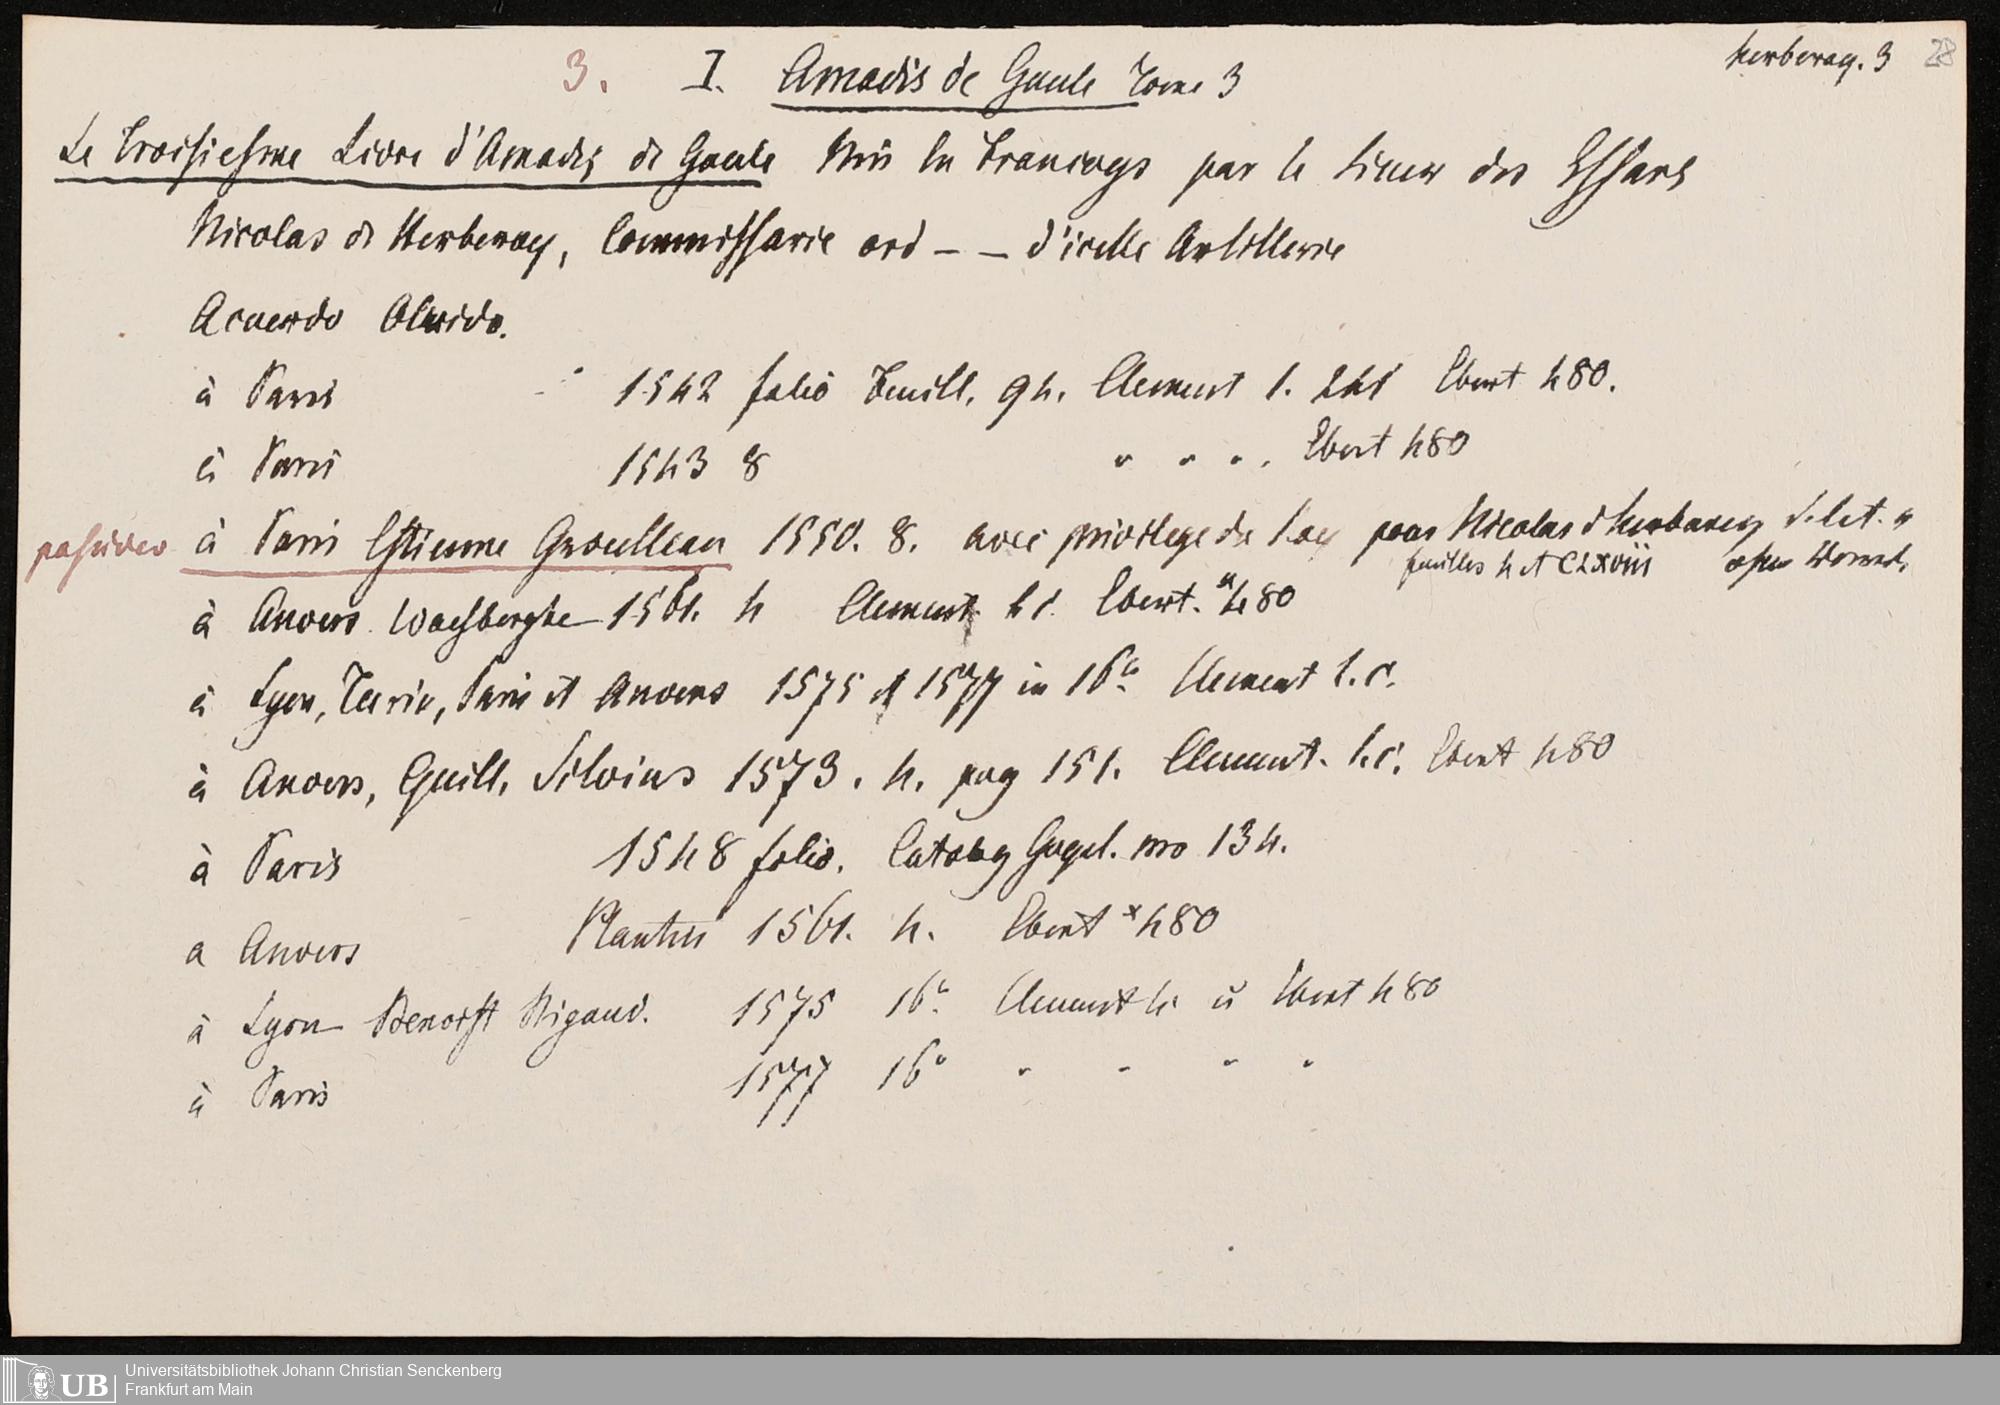 herberay. 3 28
3. I. Amadis de Gaule Tome 3
Le Troisiesme Livre d'Amadis de Gaule Mis En Francoys par le Sieur des Essars
Nicolas de Herberay, Commissarie ord – – d'icelle Artillerie
Acuerdo Olvido.
à Paris 1542 folio Feuill. 94. Clement 1. 241 Ebert 480.
à Paris 1543 8 " " " . Ebert 480
à Paris Estienne Groulleau 1550. 8. avec privilege du Roy pour Nicolas d'herberay
feuilles 4 et CLXVIII
à Anvers Waesberghe 1561. 4 Clement. Ebert. *480
à Lyon, Turin, Paris et Anvers 1575 et 1577 in 16° Clement l. c.
à Anvers, Guill. Silvius 1573. 4. pag 151. Clement. l. c. Ebert 480
à Paris 1548 folio. Catalog Gugel. nro 134.
a Anvers Plantin 1561. 4. Ebert *480
à Lyon Benoist Rigaud. 1575 16° Clement u Ebert 480
à Paris 1577 16° " " " "
Universitätsbibliothek Johann Christian Senckenberg
Frankfurt am Main
UB